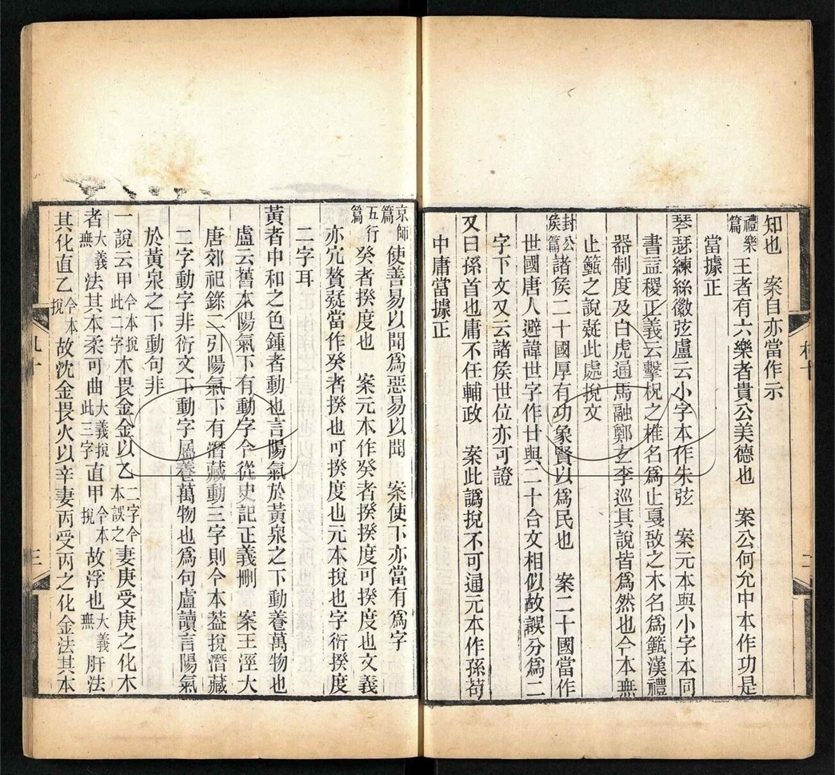 知也　案自亦當作示
禮樂篇王者有六樂者貴公美德也　案公何允中本作功是
當據正
琴瑟練絲徽弦盧云小字本作朱弦　案元本與小字本同
書益稷正義云擊柷之椎名為止戛敔之木名為籈漢禮
器制度及白虎通馬融鄭玄李巡其說皆為然也今本無
止籈之說疑此處挩文
封公矦篇諸矦二十國厚有功象賢以為民也　案二十國當作
世國唐人避諱世字作廿與二十合文相似故誤分為二
字下文又云諸矦世位亦可證
又曰孫首也庸不任輔政　案此譌挩不可通元本作孫苟
中庸當據正
京師篇使善易以聞為惡易以聞　案使下亦當有為字
五行篇癸者揆度也　案元本作癸者揆揆度可揆度也文義
亦宂贅疑當作癸者揆也可揆度也元本挩也字衍揆度
二字耳
黃者中和之色鍾者動也言陽氣於黃泉之下動養萬物也
盧云舊本陽氣下有動字今從史記正義刪　案王涇大
唐郊祀錄二引陽氣下有潛藏動三字則今本葢挩潛藏
二字動字非衍文下動字屬養萬物也為句盧讀言陽氣
於黃泉之下動句非
一說云甲此二字今本挩木畏金金以乙二字今本誤之妻庚受庚之化木
者大義無法其本柔可曲大義挩此三字直甲今本挩故浮也大義無肝法
其化直乙今本挩故沈金畏火以辛妻丙受丙之化金法其本
二
三